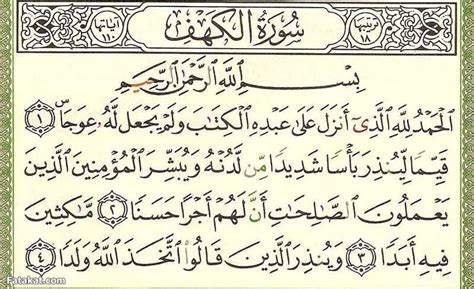 ترتيبها ١٨ سُورَةُ الْكَهْفِ آياتها ١١٠
بِسْمِ اللَّهِ الرَّحْمَٰنِ الرَّحِيمِ
الْحَمْدُ لِلَّهِ الَّذِي أَنزَلَ عَلَىٰ عَبْدِهِ الْكِتَابَ وَلَمْ يَجْعَل لَّهُ عِوَجًا ۜ ١
قَيِّمًا لِّيُنذِرَ بَأْسًا شَدِيدًا مِّن لَّدُنْهُ وَيُبَشِّرَ الْمُؤْمِنِينَ الَّذِينَ
يَعْمَلُونَ الصَّالِحَاتِ أَنَّ لَهُمْ أَجْرًا حَسَنًا ٢ مَّاكِثِينَ
فِيهِ أَبَدًا ٣ وَيُنذِرَ الَّذِينَ قَالُوا اتَّخَذَ اللَّهُ وَلَدًا ٤
Fatakat.com